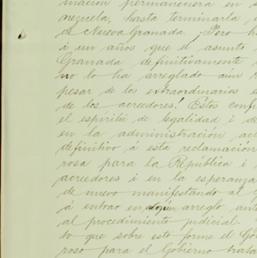 macion permanenera en s
nezuela, hasta terminarla
de Nueva Granada. Pero h
á un años que el asunto
Granada definitivamente
no lo ha arreglado aún
pesar de las extraordinarias
de los acredores! Estos conf
el espíritu de legalidad i d
en la administracion ac
definitivo á esta reclamacion
rosa para la República i
acredores i en la esperanza
de nuevo manifestando al
á entrar en algun arreglo, an
al procedimiento judicial
lo que sobre esto forme el Go
roso para el Gobierno trata